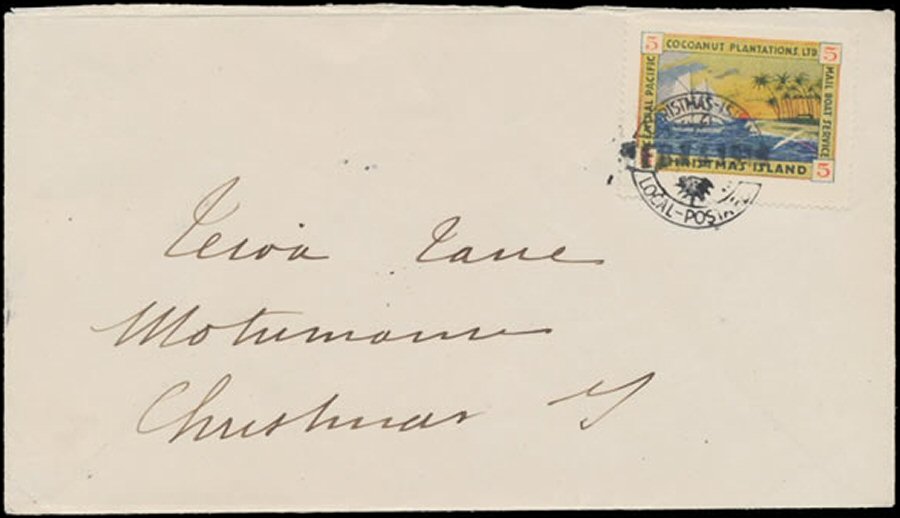 5 COCOANUT PLANTATIONS, LTD 5
CENTRAL PACIFIC
MAIL BOAT SERVICE
CHRISTMAS ISLAND 5
CHRISTMAS-IS
LOCAL-POST
Motumanu
Christmas Is